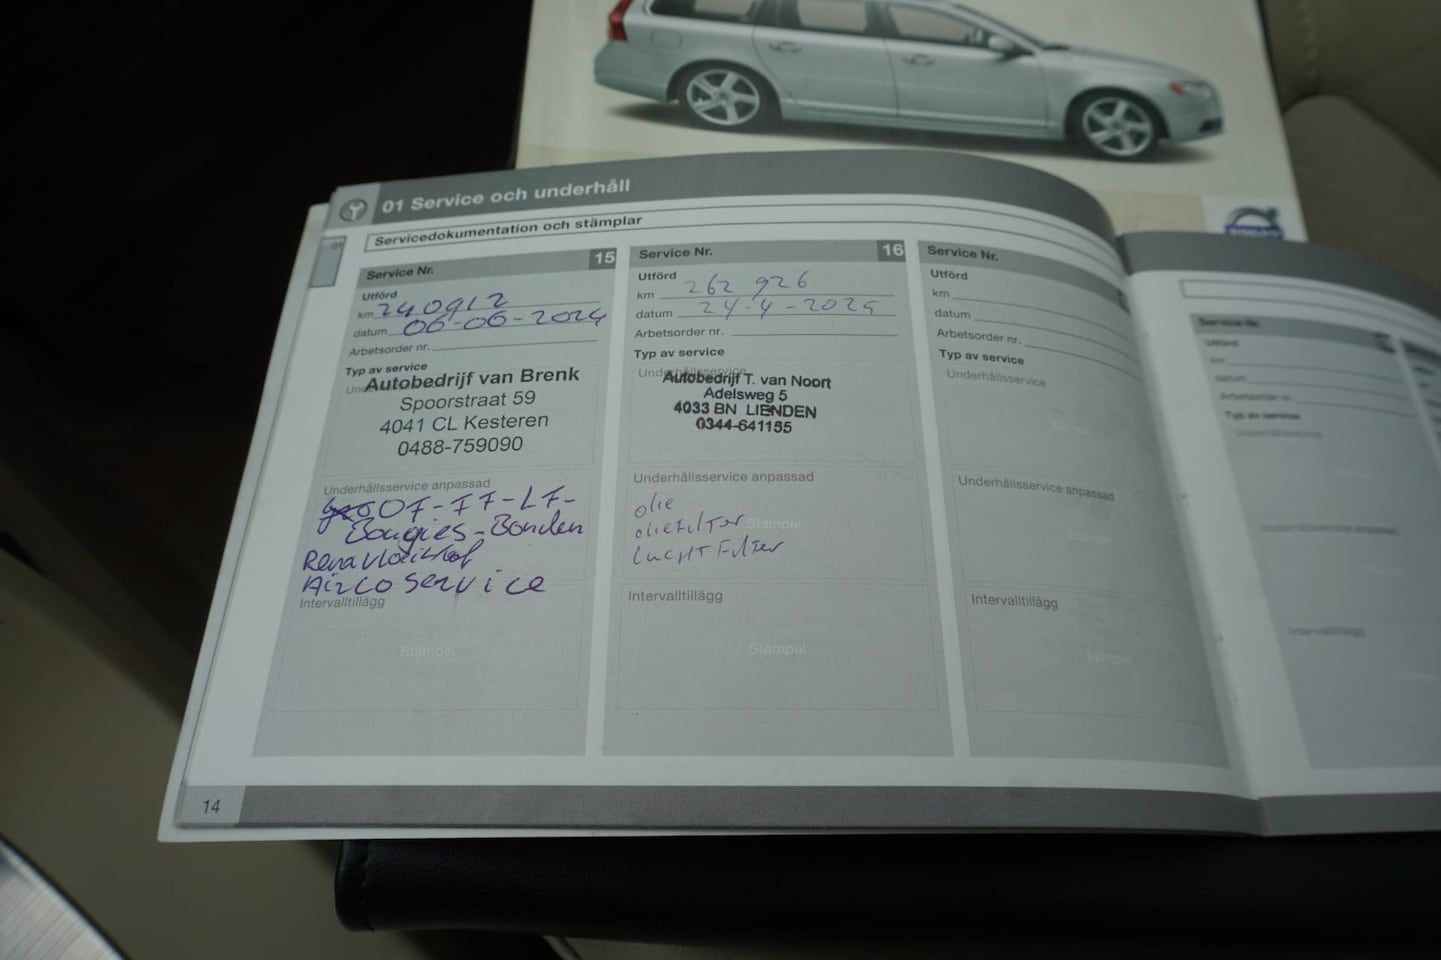 01 Service och underhåll
Servicedokumentation och stämplar
Service Nr. 15
Utförd
km 240912
datum 06-06-2024
Arbetsorder nr.
Typ av service
Autobedrijf van Brenk
Spoorstraat 59
4041 CL Kesteren
0488-759090
Underhållsservice anpassad
OF-FF-LF-
Bougies-Banden
Airco service
Intervalltillägg
Stämpel
Service Nr. 16
Utförd
km 262 926
datum 24-4-2025
Arbetsorder nr.
Typ av service
Underhållsservice
Autobedrijf T. van Noort
Adelsweg 5
4033 BN LIENDEN
0344-641155
Underhållsservice anpassad
olie
olieFilter
Stämpel
luchtFilter
Intervalltillägg
Stämpel
Service Nr.
Utförd
km
datum
Arbetsorder nr.
Typ av service
Underhållsservice
Stämpel
Underhållsservice anpassad
Stämpel
Intervalltillägg
Stämpel
14
Service Nr.
Utförd
km
datum
Arbetsorder nr.
Typ av service
Underhållsservice
Underhållsservice anpassad
Intervalltillägg